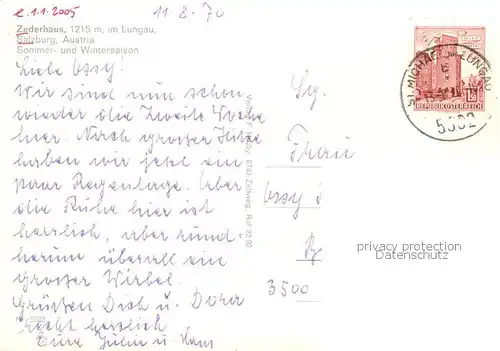 e. 1.1.2005
11. 8. 70
Zederhaus, 1215 m, im Lungau,
Salzburg, Austria
Sommer- und Wintersaison
Liebe Ossy!
Wir sind nun schon
wieder die zweite Woche
hier. Nach großer Hitze
haben wir jetzt ein
paar Regentage. Aber
die Ruhe hier ist
herrlich, aber rund-
herum überall ein
großer Wirbel.
Grüßen Dich u. Dora
recht herzlich
Eure Julia u. Hans
5092
8740 Zeltweg, Ruf 22 92
Sg.
Frau
Ossy
3500
REPUBLIK ÖSTERREICH
ST. MICHAEL LUNGAU
5582
privacy protection
Datenschutz